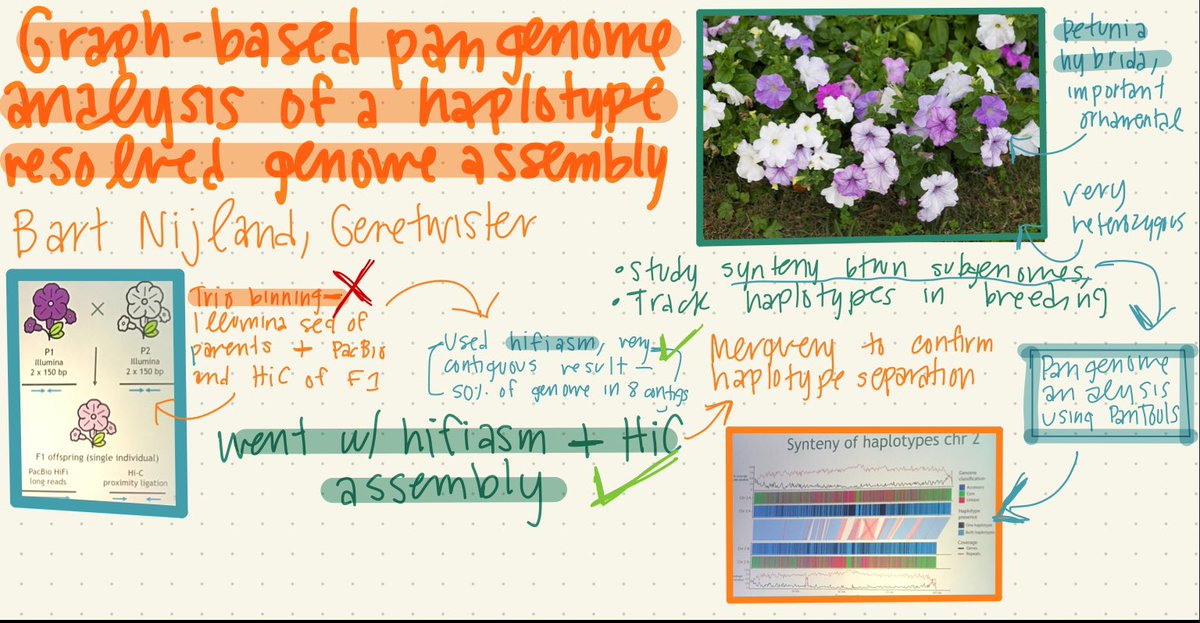 Graph-based pangenome
analysis of a haplotype
resolved genome assembly
Bart Nijland, Genetwister
petunia
hybrida,
important
ornamental
very
heterozygous
• Study synteny btwn subgenomes,
• Track haplotypes in breeding
P1
Illumina
2 x 150 bp
P2
Illumina
2 x 150 bp
F1 offspring (single individual)
PacBio HiFi
long reads
Hi-C
proximity ligation
Trio binning -
Illumina seq of
parents + PacBio
and HiC of F1
Used hifiasm, very
contiguous result -
50% of genome in 8 contigs
went w/ hifiasm + HiC
assembly
Merquery to confirm
haplotype separation
Pangenome
analysis
using PanTools
Synteny of haplotypes chr 2
Genome
classification
Accessory
Core
Unique
Haplotype
presence
One haplotype
Both haplotypes
Coverage
Genes
Repeats